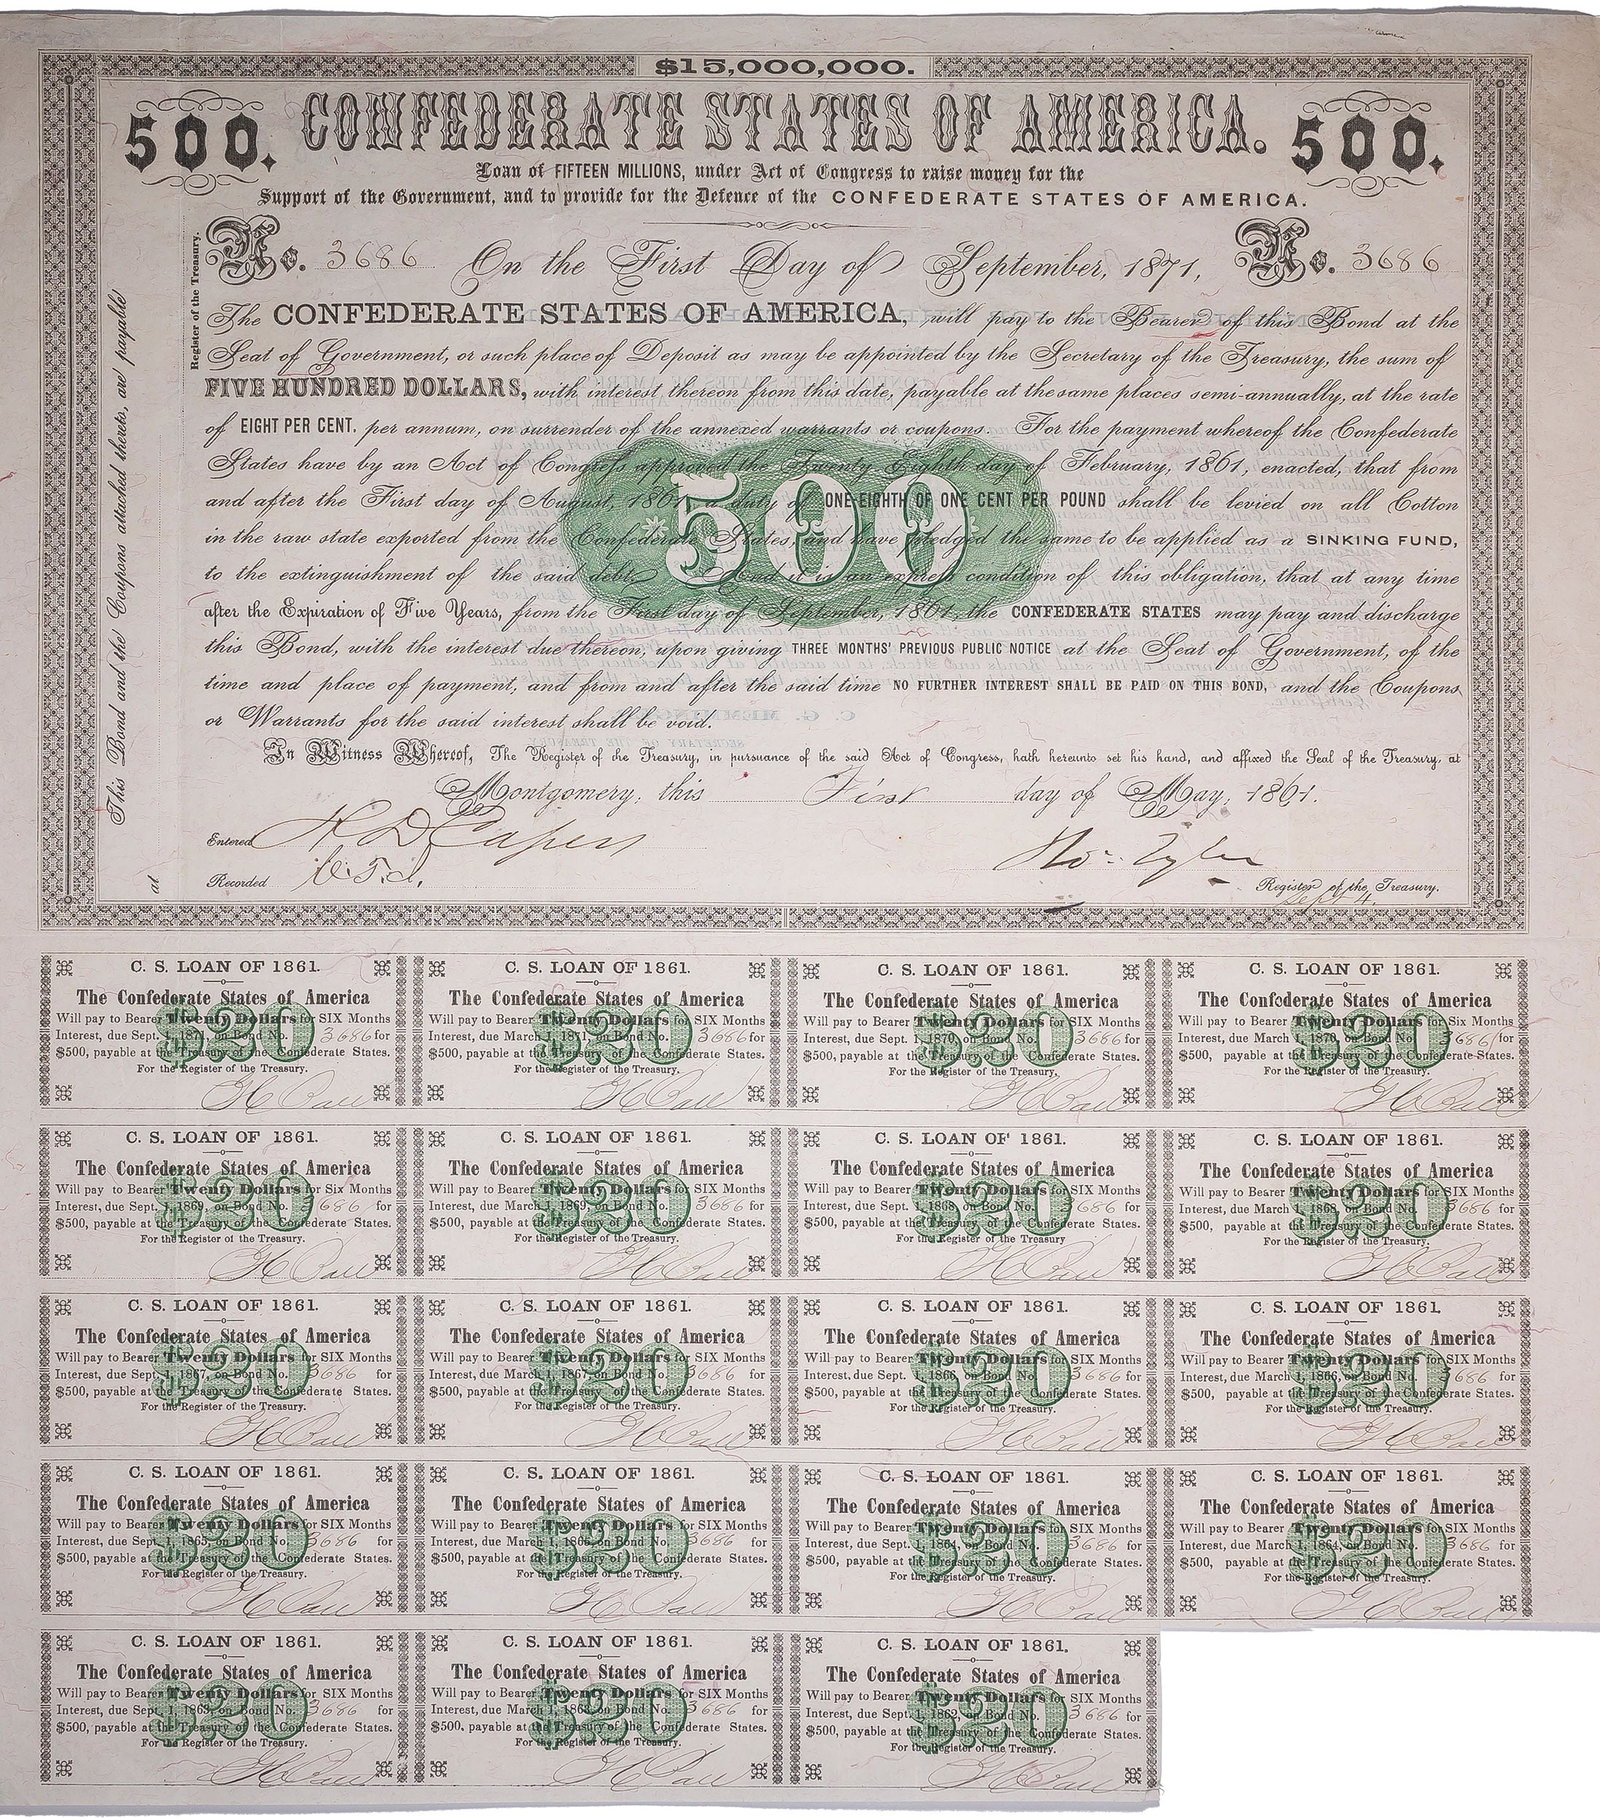 $15,000,000.
500. CONFEDERATE STATES OF AMERICA. 500.
Loan of FIFTEEN MILLIONS, under Act of Congress to raise money for the
Support of the Government, and to provide for the Defence of the CONFEDERATE STATES OF AMERICA.
No. 3686 On the First Day of September, 1871, No. 3686
The CONFEDERATE STATES OF AMERICA, will pay to the Bearer of this Bond at the
Seat of Government, or such place of Deposit as may be appointed by the Secretary of the Treasury, the sum of
FIVE HUNDRED DOLLARS, with interest thereon from this date, payable at the same places semi-annually, at the rate
of EIGHT PER CENT. per annum, on surrender of the annexed warrants or coupons. For the payment whereof the Confederate
States have by an Act of Congress approved the Twenty Eighth day of February, 1861, enacted, that from
and after the First day of August, 1861 a duty of ONE-EIGHTH OF ONE CENT PER POUND shall be levied on all Cotton
in the raw state exported from the Confederate States, and have pledged the same to be applied as a SINKING FUND,
to the extinguishment of the said debt. And it is an express condition of this obligation, that at any time
after the Expiration of Five Years, from the First day of September, 1861, the CONFEDERATE STATES may pay and discharge
this Bond, with the interest due thereon, upon giving THREE MONTHS' PREVIOUS PUBLIC NOTICE at the Seat of Government, of the
time and place of payment, and from and after the said time NO FURTHER INTEREST SHALL BE PAID ON THIS BOND, and the Coupons
or Warrants for the said interest shall be void.
500
In Witness Whereof, The Register of the Treasury, in pursuance of the said Act of Congress, hath hereunto set his hand, and affixed the Seal of the Treasury, at
Montgomery, this First day of May, 1861.
Entered H D Capers
Recorded
Register of the Treasury.
Sept 4.
Register of the Treasury.
This Bond and the Coupons attached thereto, are payable
at
C. S. LOAN OF 1861.
The Confederate States of America
Will pay to Bearer Twenty Dollars for SIX Months
Interest, due Sept. 1, on Bond No. 3686 for
$500, payable at the Treasury of the Confederate States.
For the Register of the Treasury.
$20
C. S. LOAN OF 1861.
The Confederate States of America
Will pay to Bearer Twenty Dollars for SIX Months
Interest, due March 1, 1871, on Bond No. 3686 for
$500, payable at the Treasury of the Confederate States.
For the Register of the Treasury.
$20
C. S. LOAN OF 1861.
The Confederate States of America
Will pay to Bearer Twenty Dollars for SIX Months
Interest, due Sept. 1, 1870, on Bond No. 3686 for
$500, payable at the Treasury of the Confederate States.
For the Register of the Treasury.
$20
C. S. LOAN OF 1861.
The Confederate States of America
Will pay to Bearer Twenty Dollars for Six Months
Interest, due March 1, 1870, on Bond No. 3686 for
$500, payable at the Treasury of the Confederate States.
For the Register of the Treasury.
$20
C. S. LOAN OF 1861.
The Confederate States of America
Will pay to Bearer Twenty Dollars for Six Months
Interest, due Sept. 1, 1869, on Bond No. 3686 for
$500, payable at the Treasury of the Confederate States.
For the Register of the Treasury.
$20
C. S. LOAN OF 1861.
The Confederate States of America
Will pay to Bearer Twenty Dollars for SIX Months
Interest, due March 1, 1869, on Bond No. 3686 for
$500, payable at the Treasury of the Confederate States.
For the Register of the Treasury.
$20
C. S. LOAN OF 1861.
The Confederate States of America
Will pay to Bearer Twenty Dollars for SIX Months
Interest, due Sept. 1, 1868, on Bond No. 3686 for
$500, payable at the Treasury of the Confederate States.
For the Register of the Treasury
$20
C. S. LOAN OF 1861.
The Confederate States of America
Will pay to Bearer Twenty Dollars for SIX Months
Interest, due March 1, 1868, on Bond No. 3686 for
$500, payable at the Treasury of the Confederate States.
For the Register of the Treasury.
$20
C. S. LOAN OF 1861.
The Confederate States of America
Will pay to Bearer Twenty Dollars for SIX Months
Interest, due Sept. 1, 1867, on Bond No. 3686 for
$500, payable at the Treasury of the Confederate States.
For the Register of the Treasury.
$20
C. S. LOAN OF 1861.
The Confederate States of America
Will pay to Bearer Twenty Dollars for SIX Months
Interest, due March 1, 1867, on Bond No. 3686 for
$500, payable at the Treasury of the Confederate States.
For the Register of the Treasury.
$20
C. S. LOAN OF 1861.
The Confederate States of America
Will pay to Bearer Twenty Dollars for SIX Months
Interest, due Sept. 1, 1866, on Bond No. 3686 for
$500, payable at the Treasury of the Confederate States.
For the Register of the Treasury.
$20
C. S. LOAN OF 1861.
The Confederate States of America
Will pay to Bearer Twenty Dollars for SIX Months
Interest, due March 1, 1866, on Bond No. 3686 for
$500, payable at the Treasury of the Confederate States.
For the Register of the Treasury.
$20
C. S. LOAN OF 1861.
The Confederate States of America
Will pay to Bearer Twenty Dollars for SIX Months
Interest, due Sept. 1, 1865, on Bond No. 3686 for
$500, payable at the Treasury of the Confederate States.
For the Register of the Treasury.
$20
C. S. LOAN OF 1861.
The Confederate States of America
Will pay to Bearer Twenty Dollars for SIX Months
Interest, due March 1, 1865, on Bond No. 3686 for
$500, payable at the Treasury of the Confederate States.
For the Register of the Treasury.
$20
C. S. LOAN OF 1861.
The Confederate States of America
Will pay to Bearer Twenty Dollars for SIX Months
Interest, due Sept. 1, 1864, on Bond No. 3686 for
$500, payable at the Treasury of the Confederate States.
For the Register of the Treasury.
$20
C. S. LOAN OF 1861.
The Confederate States of America
Will pay to Bearer Twenty Dollars for SIX Months
Interest, due March 1, 1864, on Bond No. 3686 for
$500, payable at the Treasury of the Confederate States.
For the Register of the Treasury.
$20
C. S. LOAN OF 1861.
The Confederate States of America
Will pay to Bearer Twenty Dollars for SIX Months
Interest, due Sept. 1, 1863, on Bond No. 3686 for
$500, payable at the Treasury of the Confederate States.
For the Register of the Treasury.
$20
C. S. LOAN OF 1861.
The Confederate States of America
Will pay to Bearer Twenty Dollars for SIX Months
Interest, due March 1, 1863, on Bond No. 3686 for
$500, payable at the Treasury of the Confederate States.
For the Register of the Treasury.
$20
C. S. LOAN OF 1861.
The Confederate States of America
Will pay to Bearer Twenty Dollars for SIX Months
Interest, due Sept. 1, 1862, on Bond No. 3686 for
$500, payable at the Treasury of the Confederate States.
For the Register of the Treasury.
$20